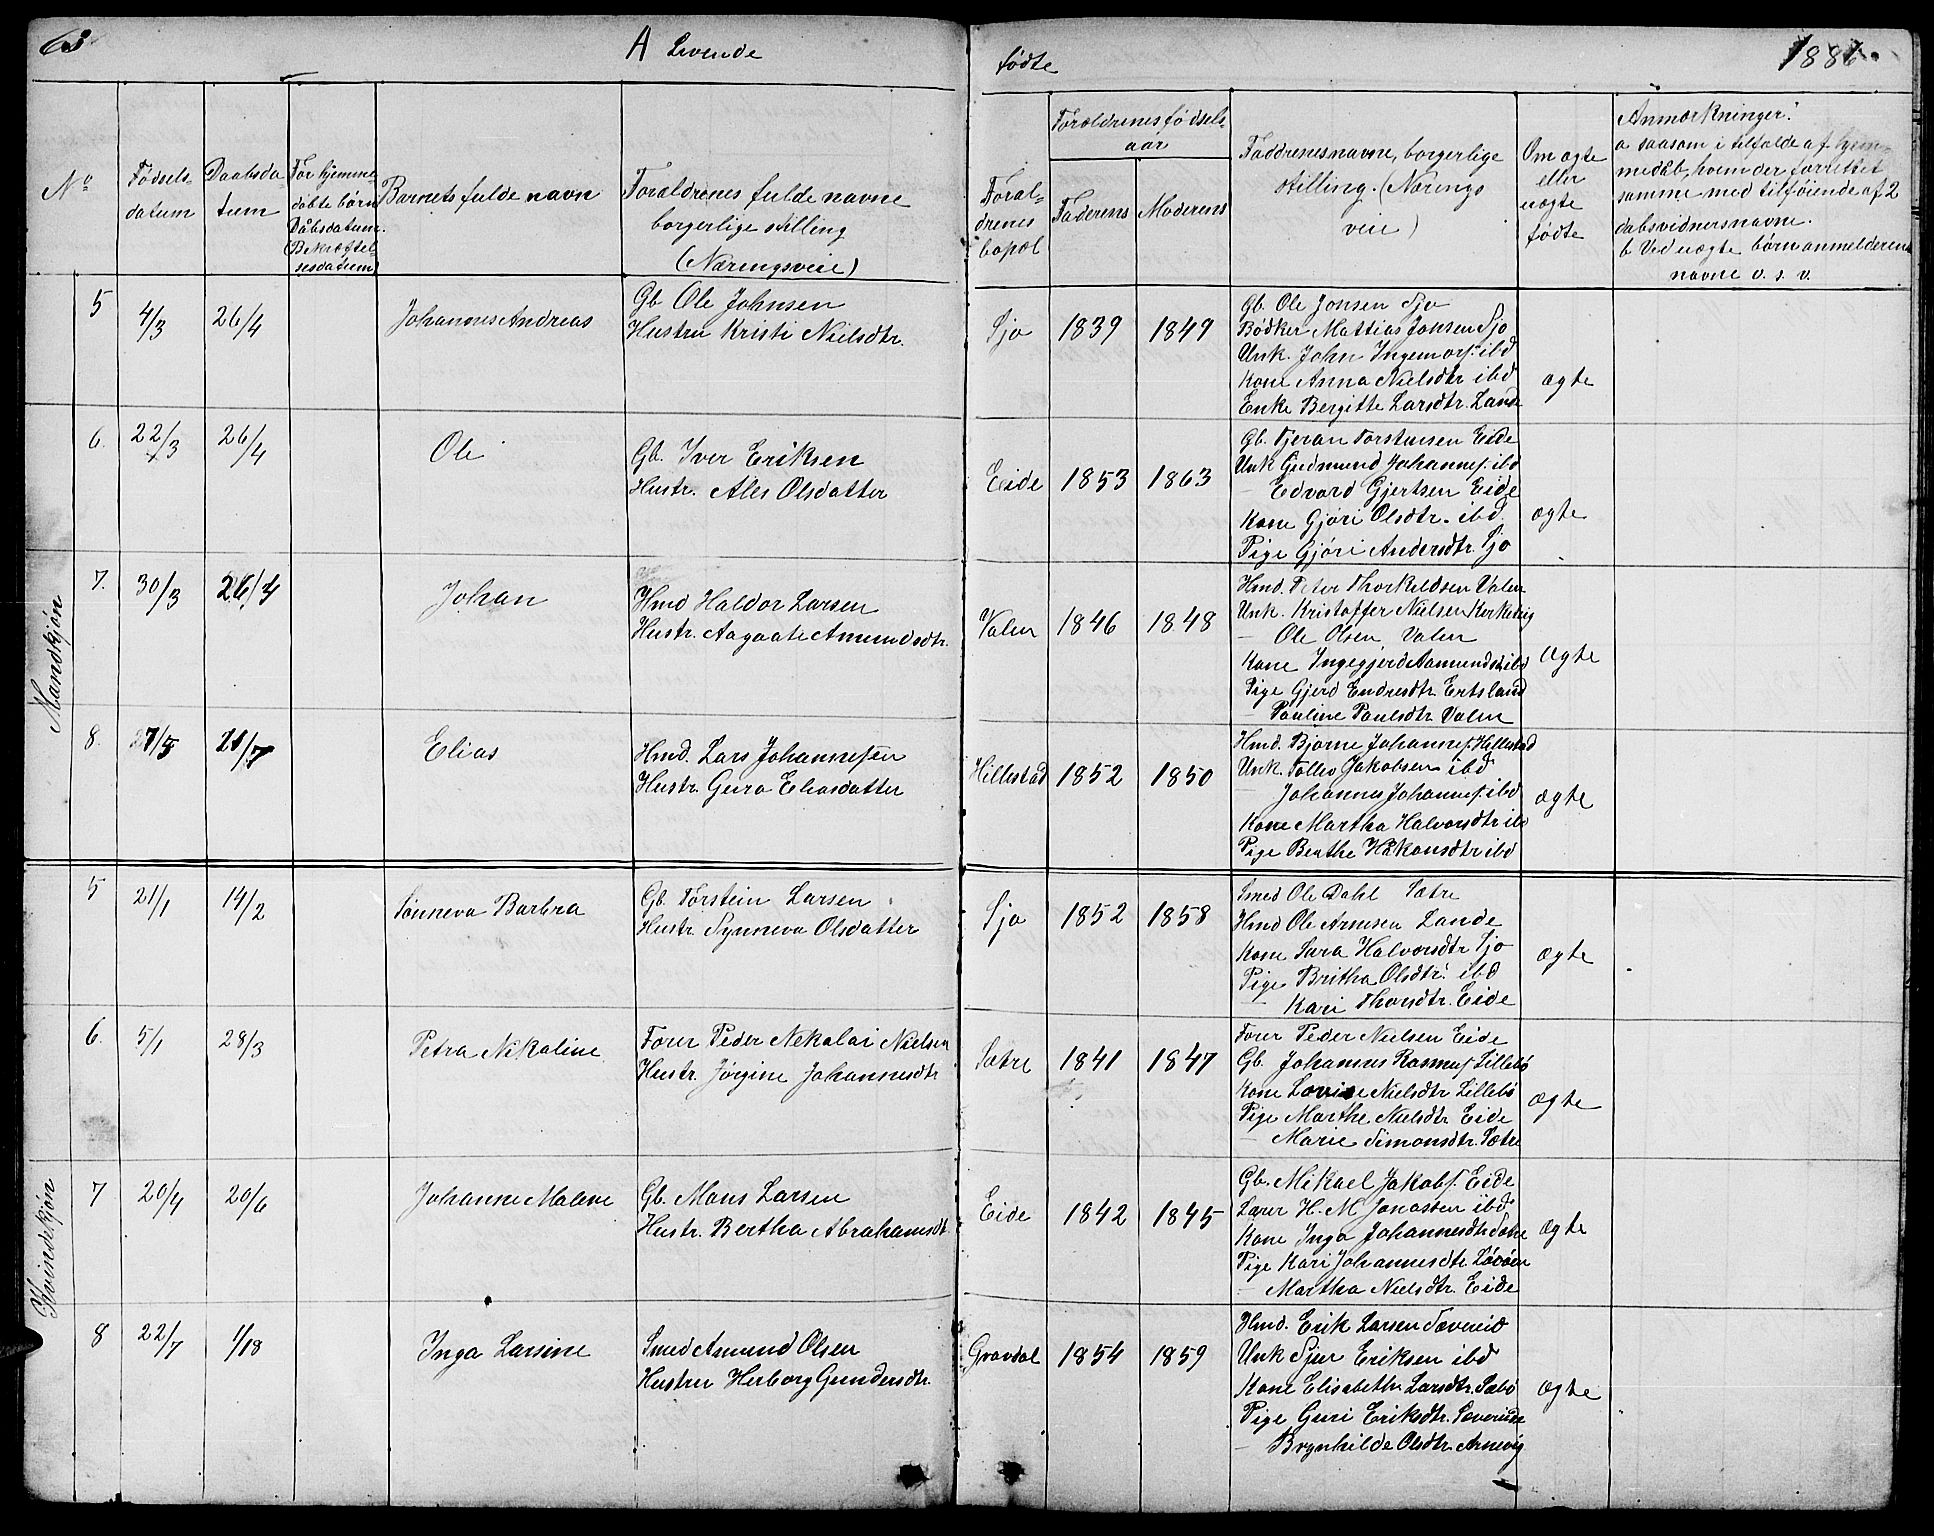 63
A Levende
fødte
1881.
No
Fødsels-
datum
Daabsda-
tum
For hjemme-
døbte børn
Dåbsdatum.
(Bekræftel-
sesdatum)
Barnets fulde navn
Forældrenes fulde navne
borgerlige stilling
(Næringsveie)
Foræl-
drenes
bopæl
Forældrenes fødsels-
aar
Faderens
Moderens
Faddrenes navne, borgerlige
stilling. (Nærings
veie)
Om ægte
eller
uægte
fødte
Anmærkninger:
a saasom i tilfælde af hjem-
medåb, hvem der forrettet
samme med tilføiende af 2
dabsvidners navne.
b Ved uægte børn anmelderens
navne o. s. v.
Mandkjøn
5 4/3 26/4 Johannes Andreas
Gb. Ole Johnsen
Hustru Kristi Nielsdtr.
Sjo 1839 1849
Gb. Ole Jonsen Sjo
Bødker Mattias Jonsen Sjo
Unk. John Ingemars. ibd
Kone Anna Nielsdtr ibd
Enke Bergitte Larsdtr. Lande
ægte
6. 22/3 26/4 Ole
Gb. Iver Eriksen
Hustr. Ales Olsdatter
Eide 1853 1863
Gb. Tjeran Torstensen Eide
Unk Gudmund Johannes. ibd
— Edvard Gjertsen Eide
Kone Gjøri Olsdtr. ibd
Pige Gjøri Andersdtr. Sjo
ægte
7. 30/3 26/4 Johan
Hmd Haldor Larsen
Hustr. Aagaate Amundsdtr.
Valen 1846 1848
Hmd. Peter Thorkeldsen Valen
Unk. Kristoffer Nielsen
— Ole Olsen Valen
Kone Ingegjerd Aamundsd ibd
Pige Gjerd Endresdtr. Ertsland
— Pauline Paulsdtr. Valen
ægte
8. Elias
Hmd. Lars Johannesen
Hustr. Guro Eliasdatter
Hillestad 1852 1850
Hmd. Bjorne Johannes. Hillestad
Unk. Tollev Jakobsen ibd
— Johannes Johannes. ibd
Kone Martha Halvorsdtr ibd
Pige Benthe Håkonsdtr ibd
ægte
Kvindekjøn
5 21/1 14/2 Sønneva Barbra
Gb. Torstein Larsen
Hustr. Synneva Olsdatter
Sjo 1852 1858
Smed Ole Dahl Sætre
Hmd Ole Arnesen Lande
Kone Sara Halvorsdtr Sjo
Pige Britha Olsdtr. ibd
— Kari Thorsdtr. Eide
ægte
6. 5/1 28/3 Petra Nikoline
Forer Peder Nekolai Nielsen
Hustr. Jørgine Johannesdtr
Sætre 1841 1847
Forer Peder Nielsen Eide
Gb. Johannes Rasmus. Lillebø
Kone Lovise Nielsdtr Lillebø
Pige Marthe Nielsdtr. Eide
— Marie Simonsdtr. Sætre
ægte
7 20/4 20/6 Johanne Malene
Gb. Mons Larsen
Hustr. Bertha Abrahamsdt.
Eide 1842 1845
Gb. Mikael Jakobs. Eide
Lærer H. M. Jonassen ibd
Kone Inga Johannesdtr Sætre
Pige Kari Johannesdtr
— Martha Nielsdtr. Eide
ægte
8 22/7 1/18 Inga Larsine
Smed Amund Olsen
Hustru Herborg Gundersdtr.
Gravdal 1854 1859
Hmd. Erik Larsen Sævereid
Unk Sjur Eriksen ibd
Kone Elisabeth Larsdtr. Sæbø
Pige Guri Eriksdtr. Sævereide
— Brynhilde Olsdtr. Arnevig
ægte